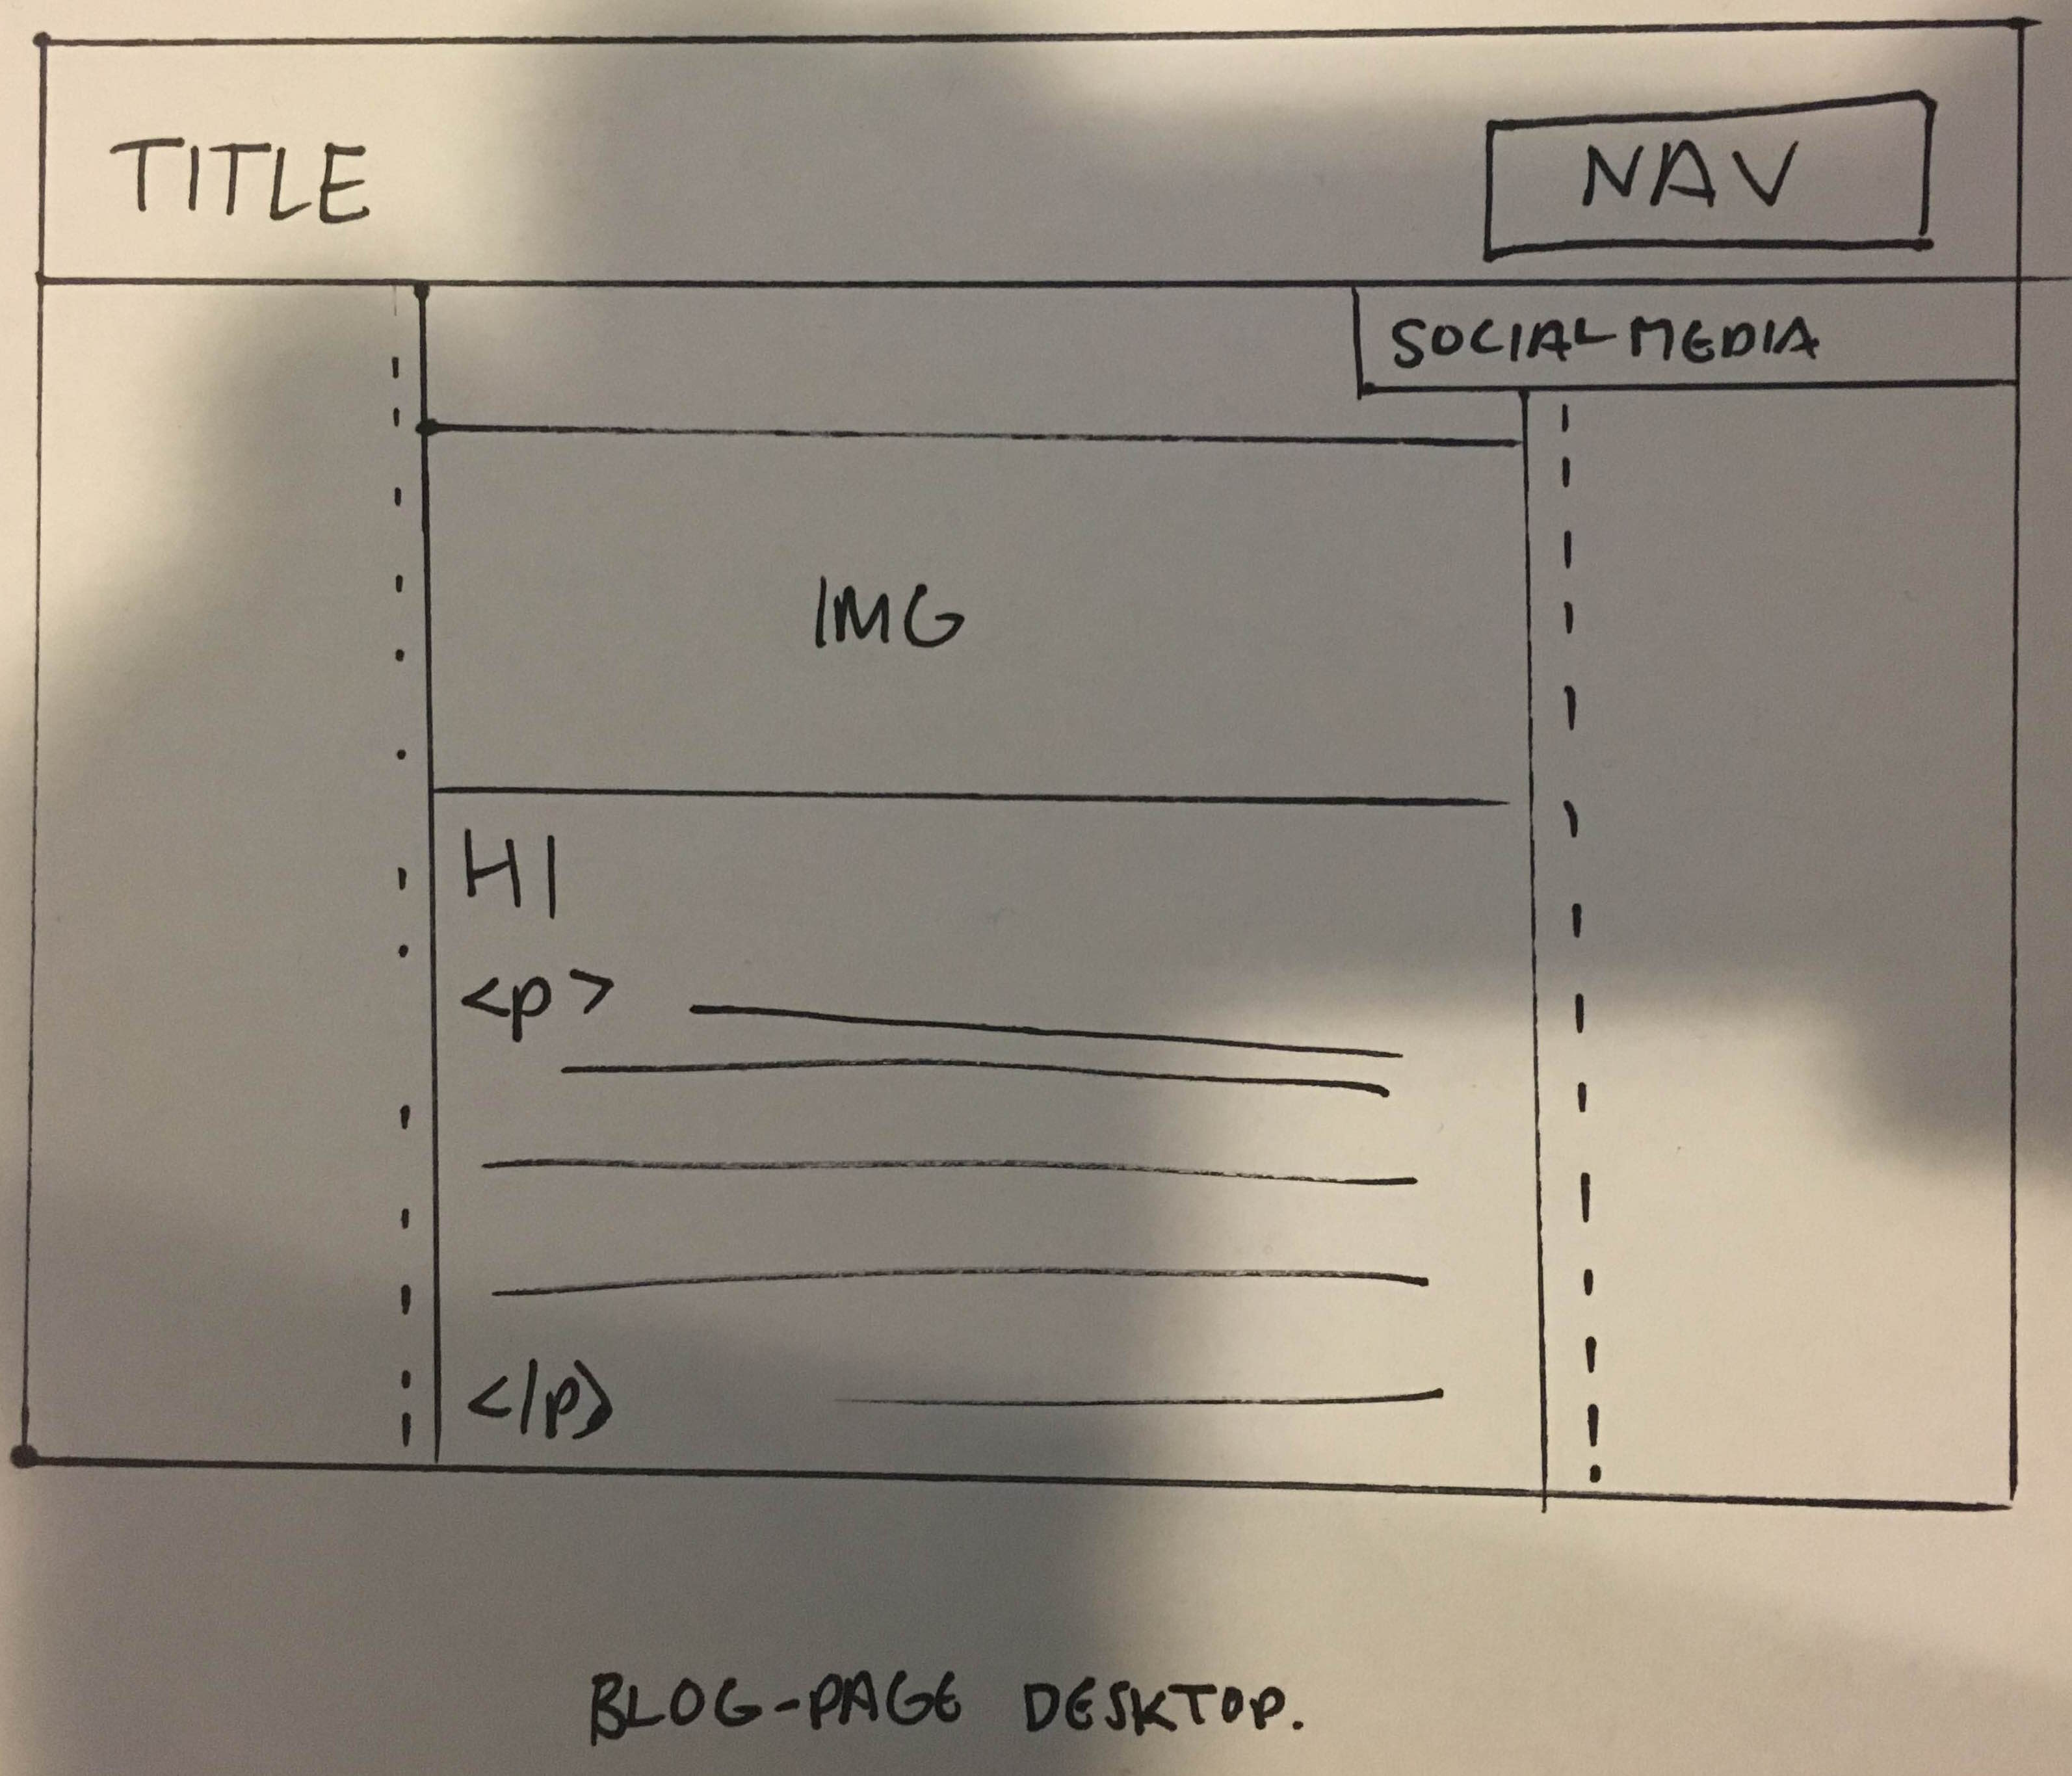 TITLE
NAV
SOCIAL MEDIA
IMG
H1
<p>
</p>
BLOG-PAGE DESKTOP.